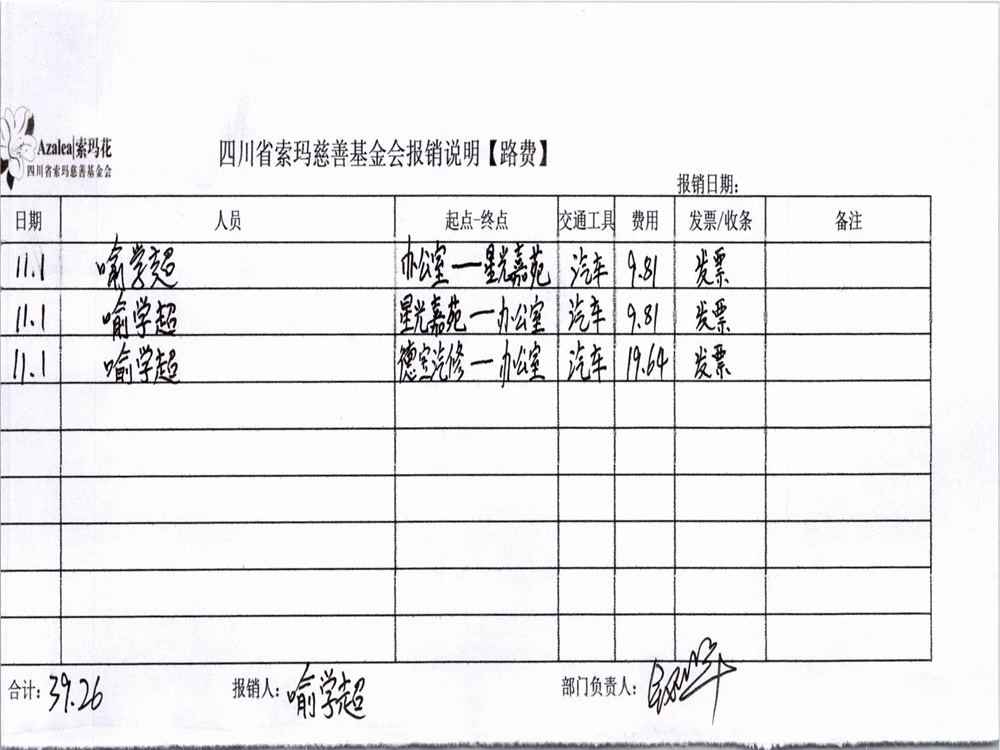 Azalea|索玛花
四川省索玛慈善基金会
四川省索玛慈善基金会报销说明【路费】
报销日期:
日期 人员 起点-终点 交通工具 费用 发票/收条 备注
11.1 喻学超 办公室—星光嘉苑 汽车 9.81 发票
11.1 喻学超 星光嘉苑—办公室 汽车 9.81 发票
11.1 喻学超 德宝汽修—办公室 汽车 19.64 发票
合计: 39.26 报销人: 喻学超 部门负责人: